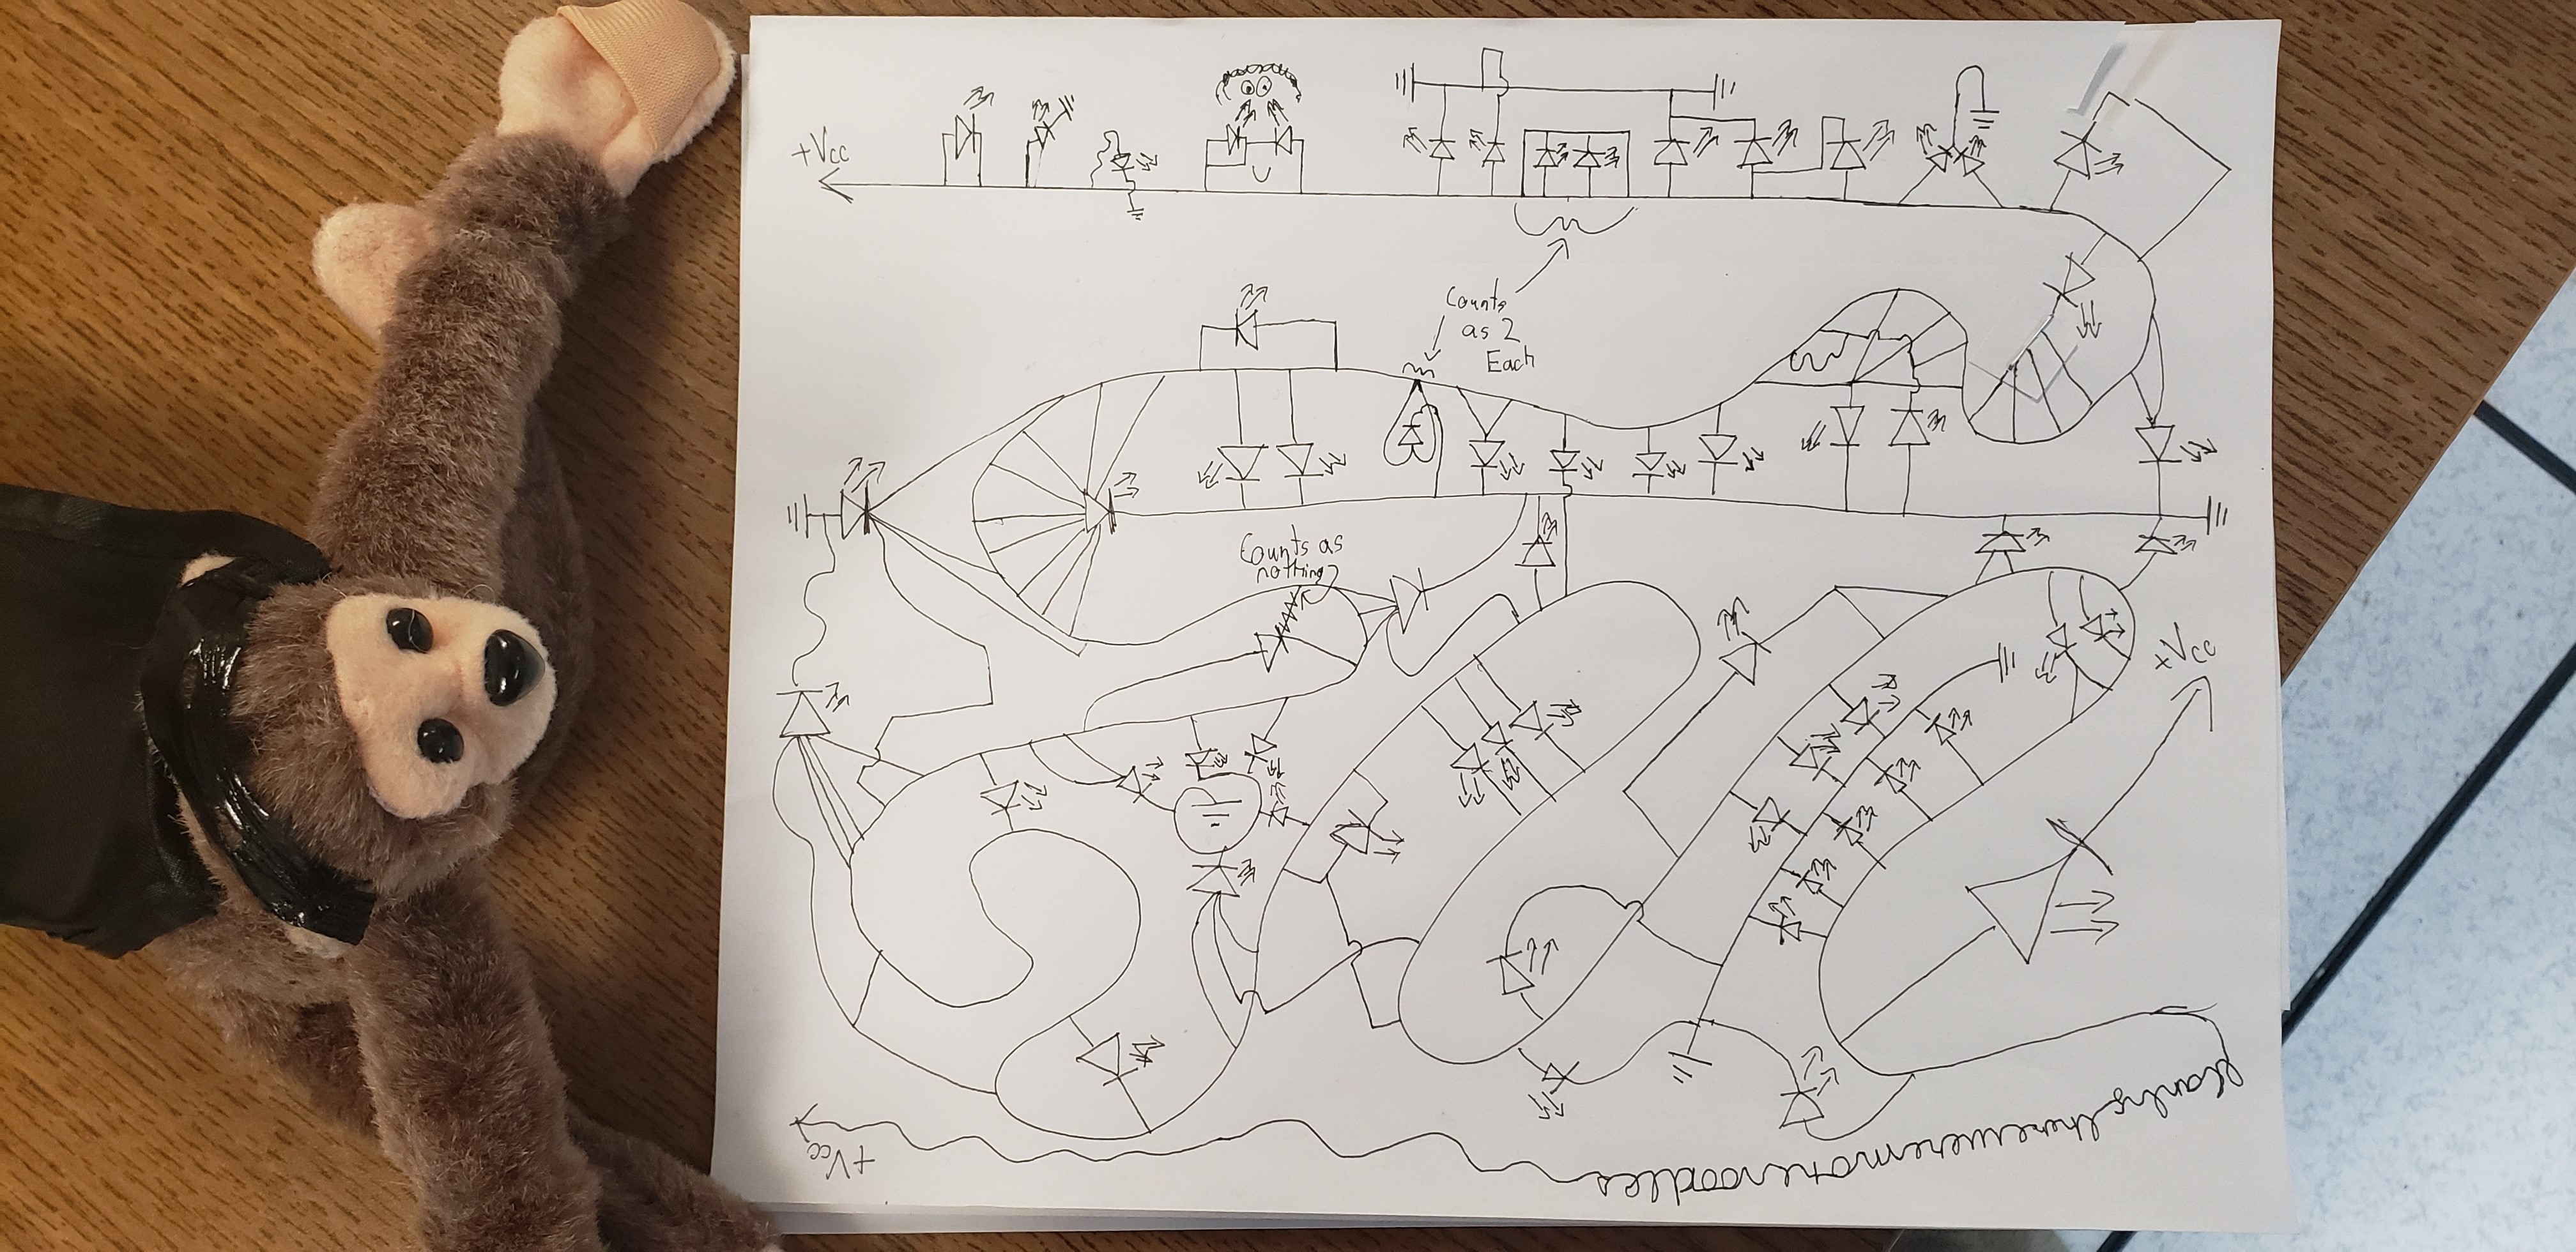 +Vcc
Counts
as 2
Each
Counts as
nothing
+Vcc
+Vcc
therewweremorenoodles